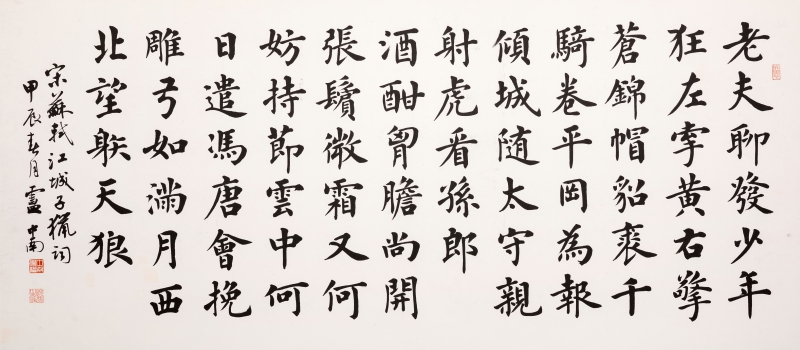 老夫聊發少年
狂左牽黃右擎
蒼錦帽貂裘千
騎卷平岡為報
傾城随太守親
射虎看孫郎
酒酣胷膽尚開
張鬢微霜又何
妨持節雲中何
日遣馮唐會挽
雕弓如滿月西
北望䠶天狼
宋蘇軾江城子獵詞
甲辰春月盧中南